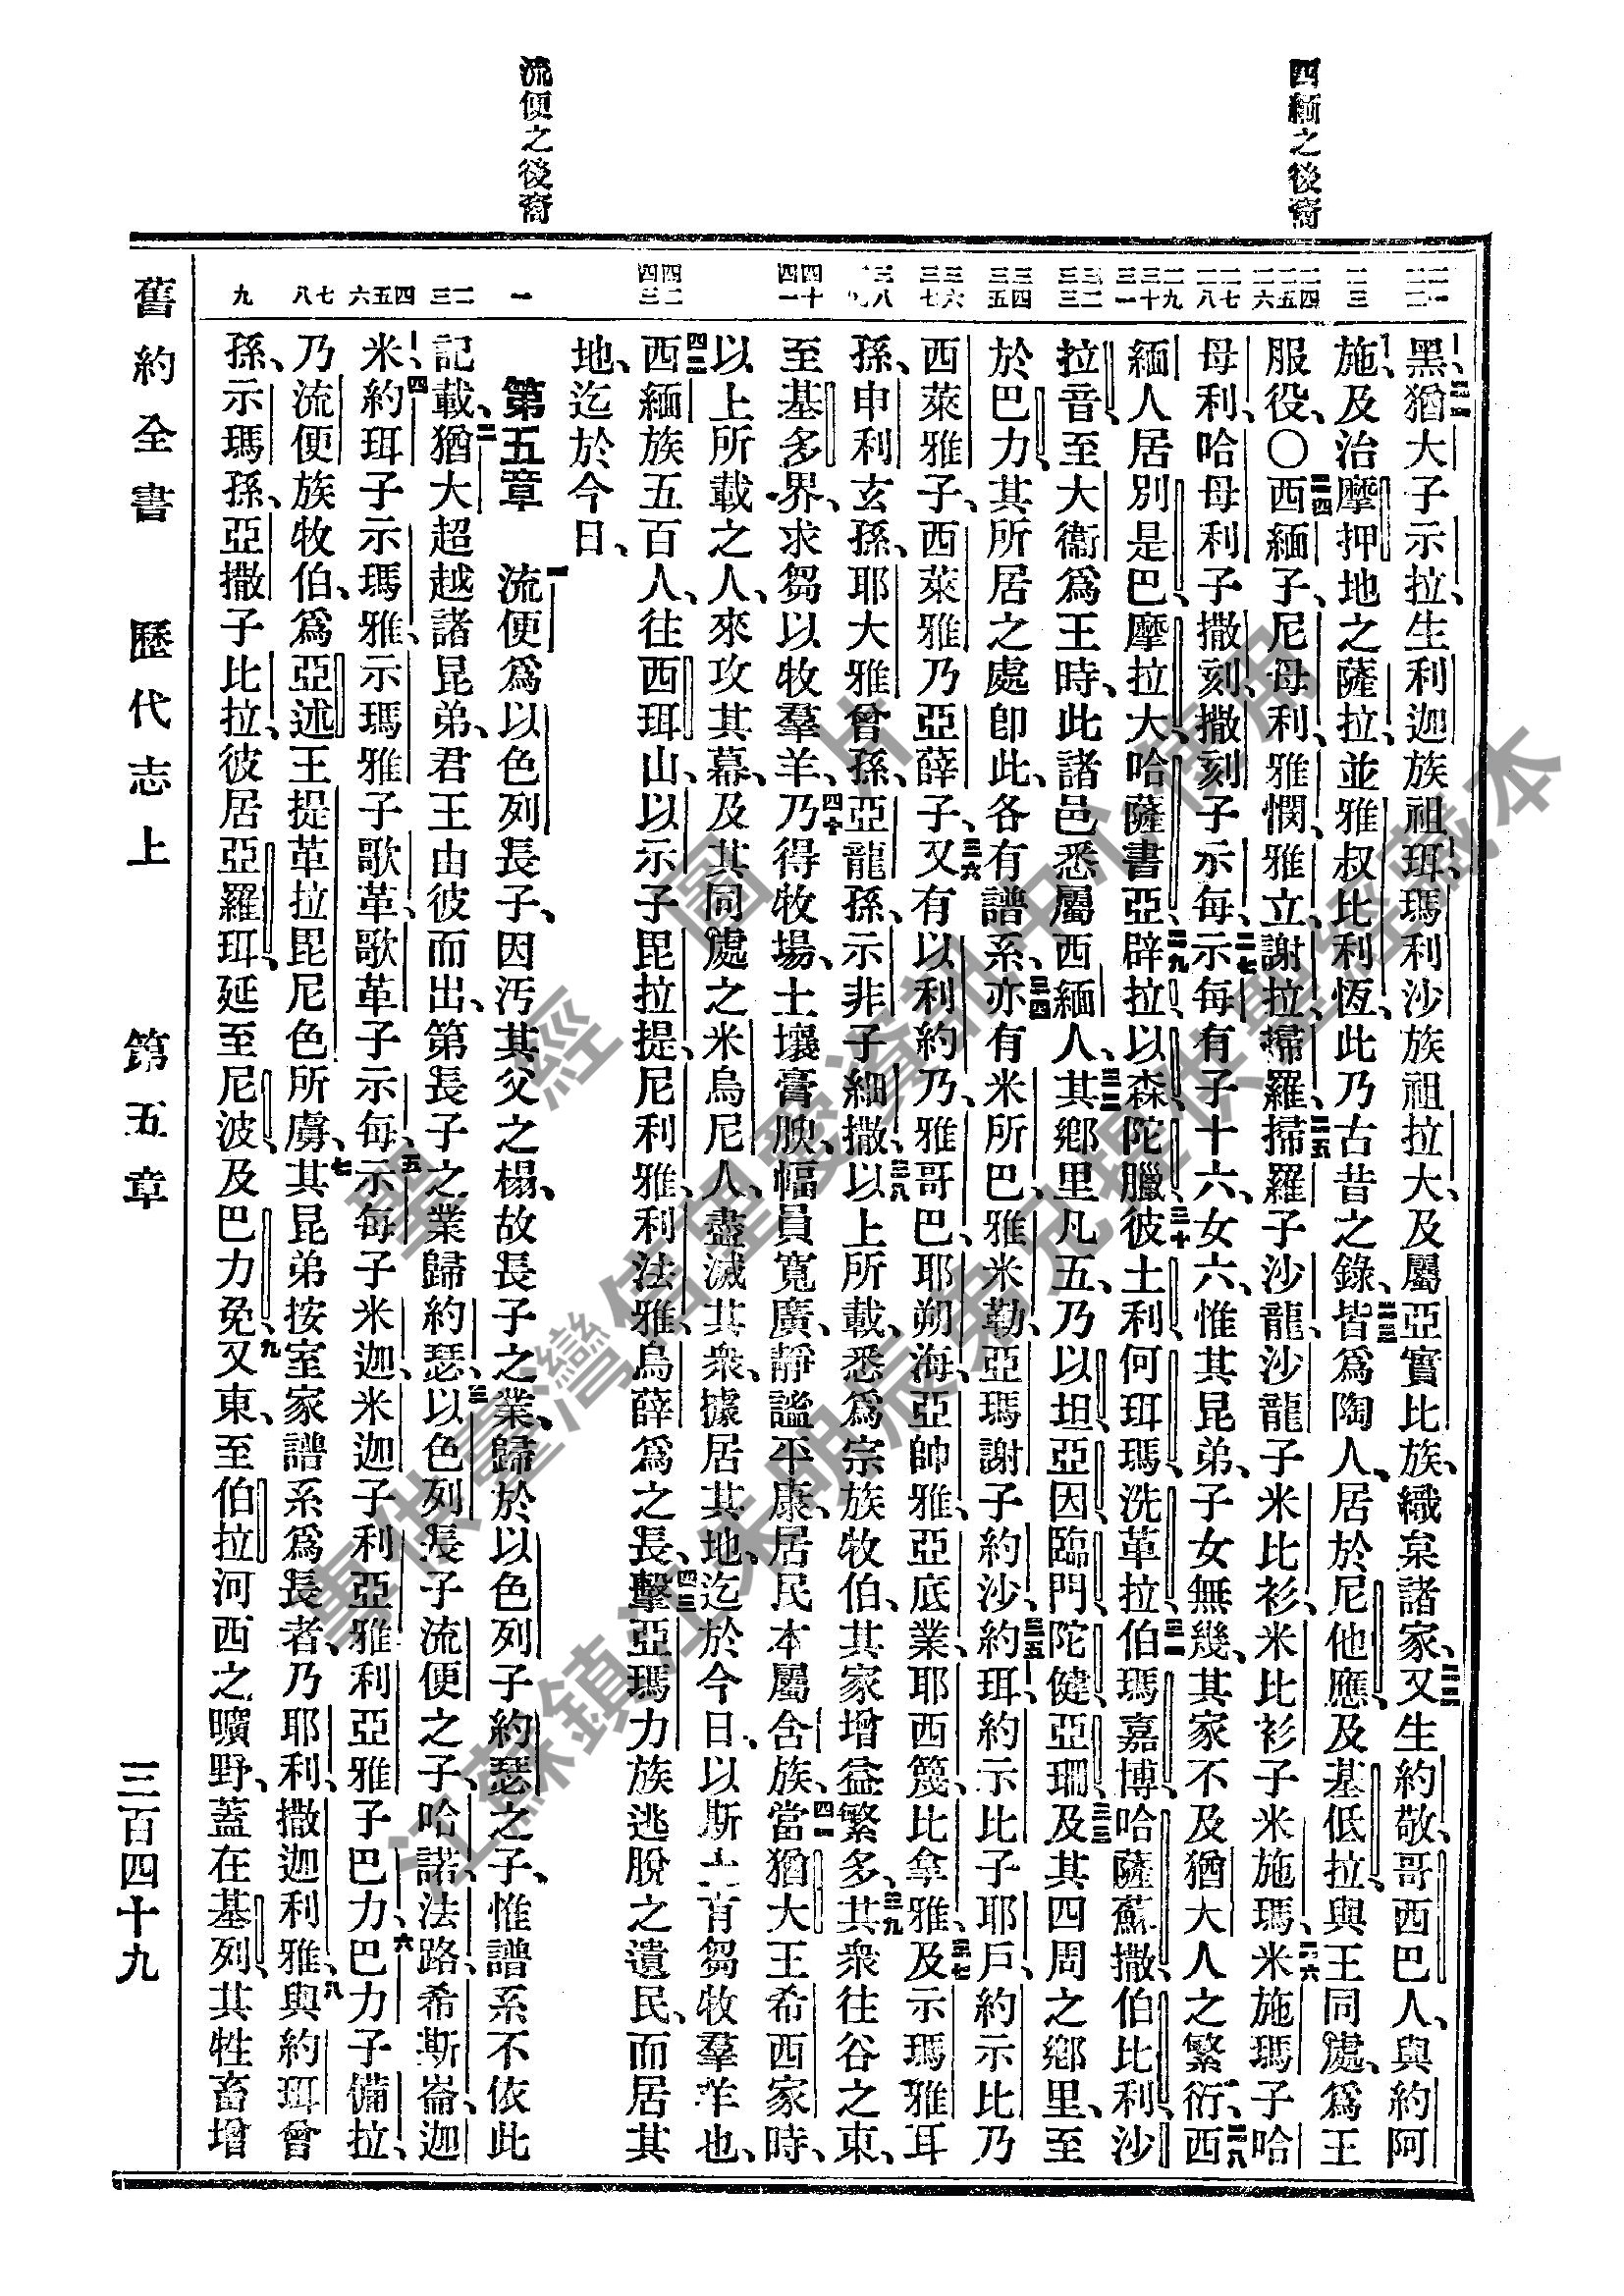 西緬之後裔
流便之後裔
二一 二二
二三
二四 二五 二六
二七 二八
二九 三十 三一
三二 三三
三四 三五
三六 三七
三八 三九
四十 四一
四二 四三
一
二 三
四 五 六
七 八
九
黑、二一猶大子示拉、生利迦族祖珥、瑪利沙族祖拉大、及屬亞實比族織枲諸家、二二又生約敬、哥西巴人、與約阿
施、及治摩押地之薩拉、並雅叔比利恆、此乃古昔之錄、二三皆爲陶人、居於尼他應、及基低拉、與王同處、爲王
服役、○二四西緬子、尼母利、雅憫、雅立、謝拉、掃羅、二五掃羅子沙龍、沙龍子米比衫、米比衫子米施瑪、二六米施瑪子哈
母利、哈母利子撒刻、撒刻子示每、二七示每有子十六、女六、惟其昆弟、子女無幾、其家不及猶大人之繁衍、二八西
緬人居別是巴、摩拉大、哈薩書亞、二九辟拉、以森、陀臘、三十彼土利、何珥瑪、洗革拉、三一伯瑪嘉博、哈薩蘇撒、伯比利、沙
拉音、至大衞爲王時、此諸邑悉屬西緬人、三二其鄉里凡五、乃以坦、亞因、臨門、陀健、亞珊、三三及其四周之鄉里、至
於巴力、其所居之處卽此、各有譜系、三四亦有米所巴、雅米勒、亞瑪謝子約沙、三五約珥、約示比子耶戶、約示比乃
西萊雅子、西萊雅乃亞薛子、三六又有以利約乃、雅哥巴、耶朔海、亞帥雅、亞底業、耶西篾、比拿雅、三七及示瑪雅耳
孫、申利玄孫、耶大雅曾孫、亞龍孫、示非子細撒、三八以上所載、悉爲宗族牧伯、其家增益繁多、三九其衆往谷之東、
至基多界、求芻以牧羣羊、四十乃得牧場、土壤膏腴、幅員寬廣、靜謐平康、居民本屬含族、四一當猶大王希西家時、
以上所載之人、來攻其幕、及其同處之米烏尼人、盡滅其衆、據居其地、迄於今日、以斯土有芻牧羣羊也、
四二西緬族五百人、往西珥山、以示子毘拉提、尼利雅、利法雅、烏薛爲之長、四三擊亞瑪力族逃脫之遺民、而居其
地、迄於今日、
第五章　一流便爲以色列長子、因汚其父之榻、故長子之業、歸於以色列子約瑟之子、惟譜系不依此
記載、二猶大超越諸昆弟、君王由彼而出、第長子之業歸約瑟、三以色列長子流便之子、哈諾、法路、希斯崙、迦
米、四約珥子示瑪雅、示瑪雅子歌革、歌革子示每、五示每子米迦、米迦子利亞雅、利亞雅子巴力、六巴力子備拉、
乃流便族牧伯、爲亞述王提革拉毘尼色所虜、七其昆弟按室家譜系爲長者、乃耶利、撒迦利雅、八與約珥曾
孫、示瑪孫、亞撒子比拉、彼居亞羅珥、延至尼波、及巴力免、九又東、至伯拉河西之曠野、蓋在基列、其牲畜增
舊約全書　歷代志上　第五章　三百四十九
聖經圖片
專供臺灣信望愛資訊中心使用
江蘇鎮江朱明辰弟兄提供聖經藏本